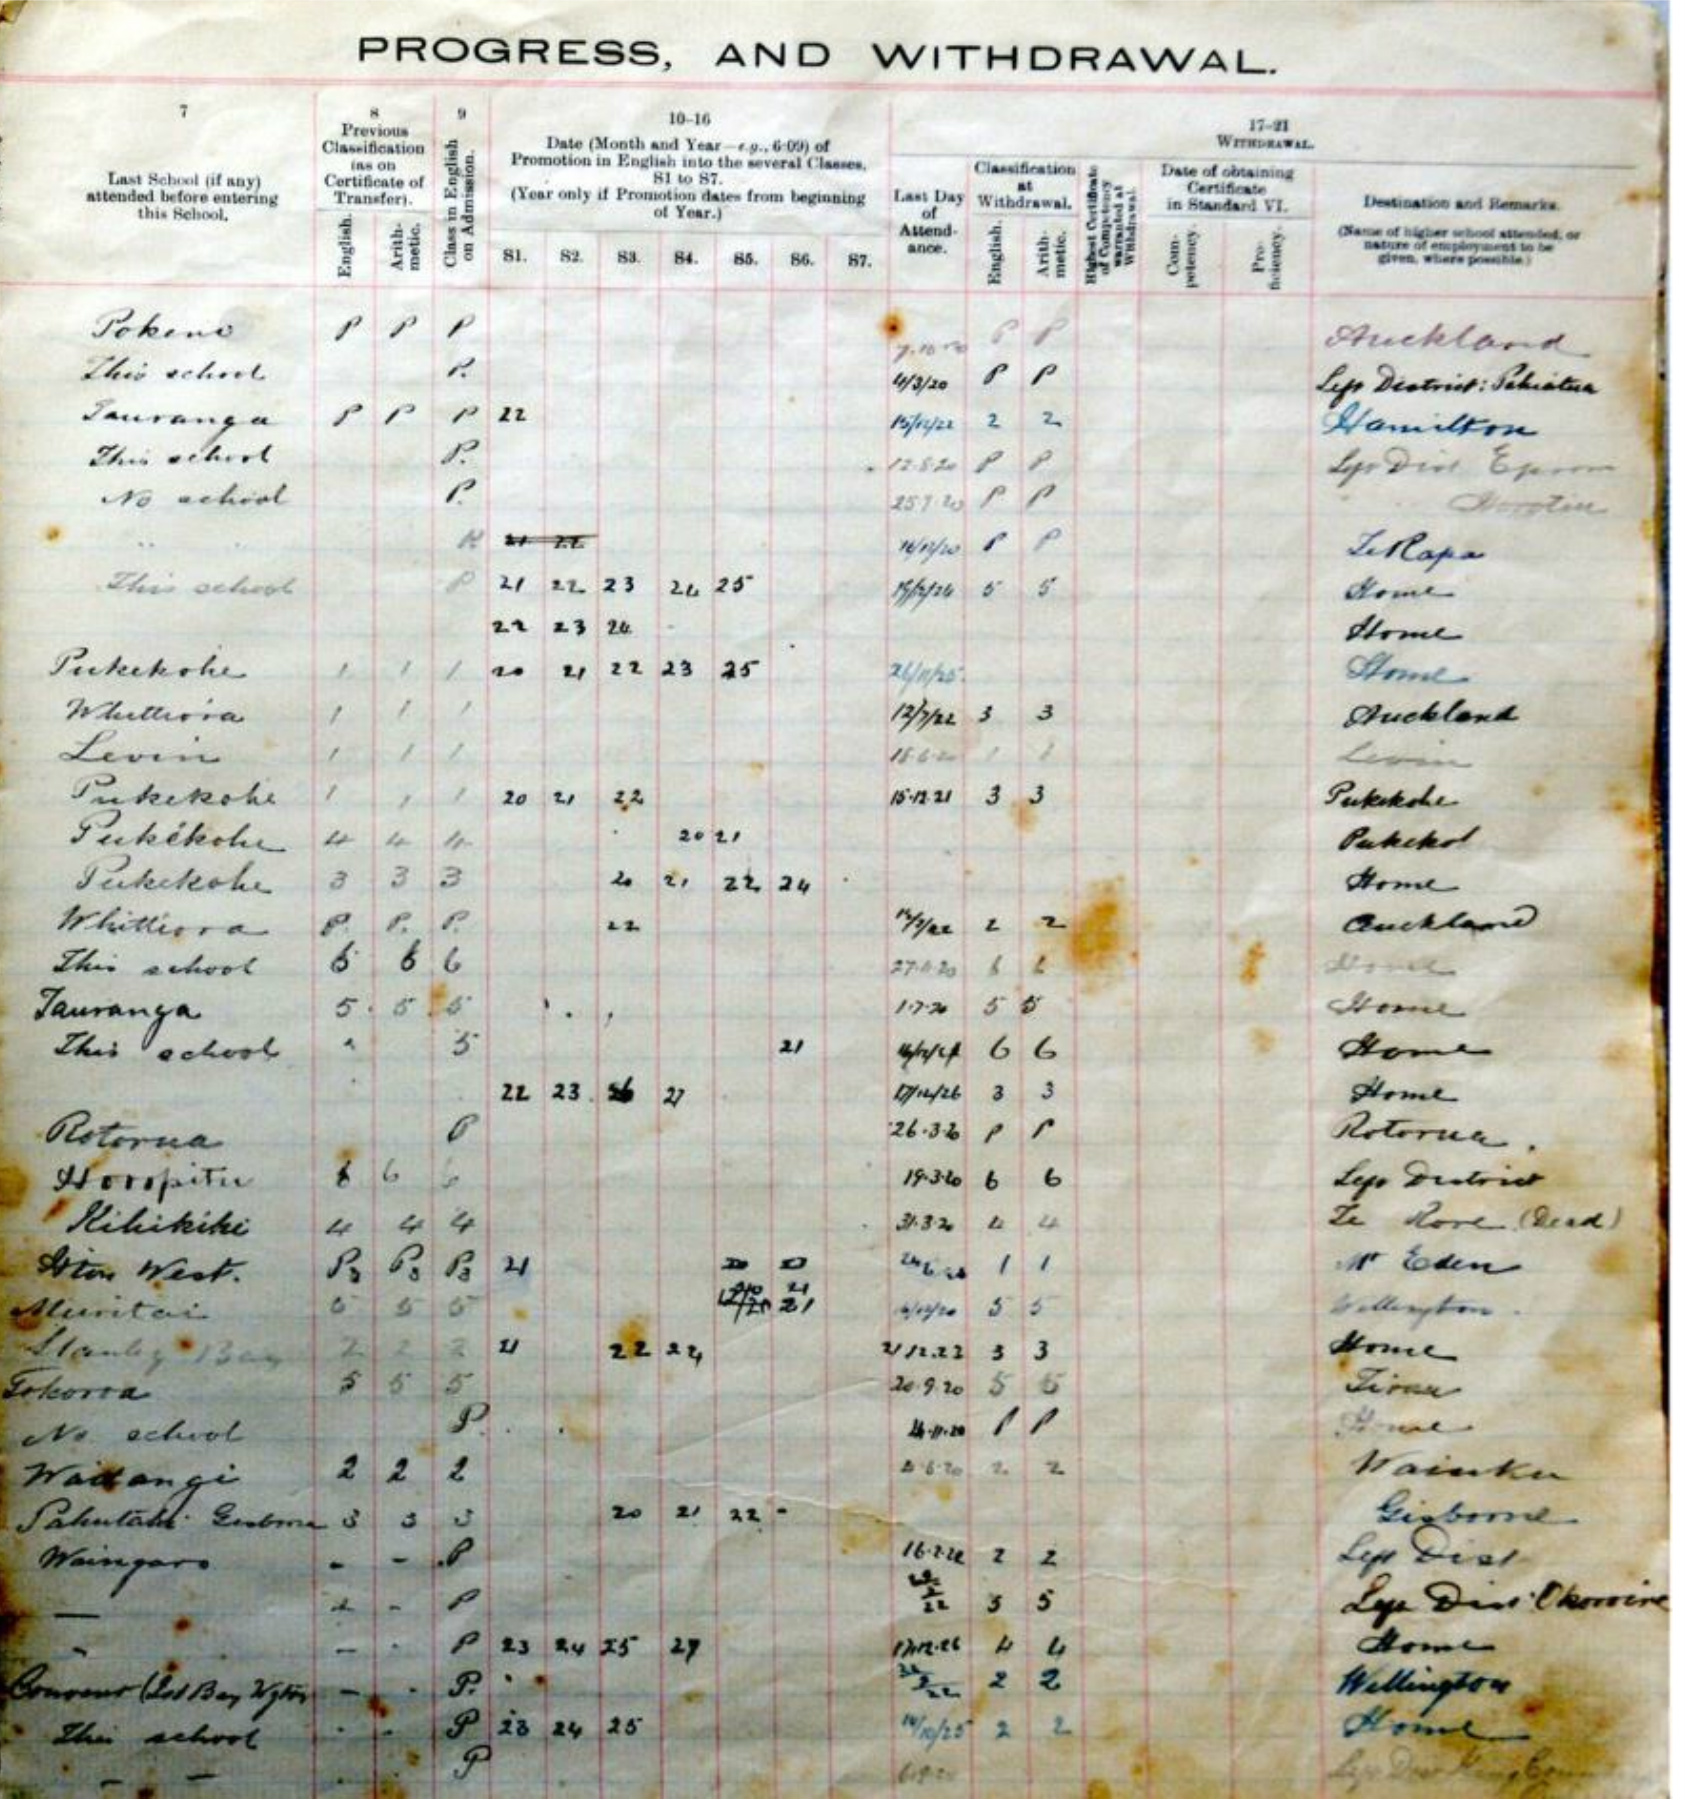 PROGRESS, AND WITHDRAWAL.
7
Last School (if any) attended before entering this School.
8
Previous Classification (as on Certificate of Transfer).
English.
Arithmetic.
9
Class in English on Admission.
10-16
Date (Month and Year—e.g., 6·09) of Promotion in English into the several Classes, S1 to S7.
(Year only if Promotion dates from beginning of Year.)
S1. S2. S3. S4. S5. S6. S7.
17-21
WITHDRAWAL.
Last Day of Attendance.
Classification at Withdrawal.
English.
Arithmetic.
Highest Certificate of Competency warranted at Withdrawal.
Date of obtaining Certificate in Standard VI.
Competency.
Proficiency.
Destination and Remarks.
(Name of higher school attended, or nature of employment to be given, where possible.)
Pokeno P P P P P Auckland
This school P. 4/3/20 P P Left District: Pahiatua
Tauranga P P P 22 15/12/22 2 2 Hamilton
This school P. 12.8.20 P P Left Dist Epsom
No school P. 25.7.20 P P
" " 21 22 16/12/20 P P Te Rapa
This school P 21 22 23 24 25 5 5 Home
22 23 24 Home
Pukekohe 1 1 1 20 21 22 23 25 26/11/25 Home
Whittiora 1 1 1 12/7/22 3 3 Auckland
Levin 1 1 1 18.6.20 1 1 Levin
Pukekohe 1 1 1 20 21 22 15.12.21 3 3 Pukekohe
Pukekohe 4 4 4 20 21
Pukekohe 3 3 3 20 21 22 24 Home
Whittiora P. P. P. 22 2 2 Auckland
This school 6 6 6 Home
Tauranga 5 5 5 1.7.20 5 5 Home
This school 5 21 6 6 Home
22 23 27 17/12/26 3 3 Home
Rotorua P 26.3.20 P P Rotorua.
Horopitu 6 6 6 19.3.20 6 6 Left District
Kihikihi 4 4 4 31.3.20 4 4 Te Rore (Dead)
West. P3 P3 P3 21 1 1 Mt Eden
Muritai 5 5 5 21 5 5 Wellington
Stanley Bay 2 2 2 21 22 24 3 3 Home
Tokoroa 5 5 5 20.9.20 5 5 Tirau
No school P. P P Home
Waitangi 2 2 2 2 2 Waiuku
Gisborne 3 3 3 20 21 22 - Gisborne
Waingaro - - P 2 2 Left Dist
— - P 5 Left Dist
" - P 23 24 25 27 17.12.26 4 4 Home
Convent P. 2 2 Wellington
This school P 23 24 25 2 2 Home
- - P 6.9.20 Left Dist King